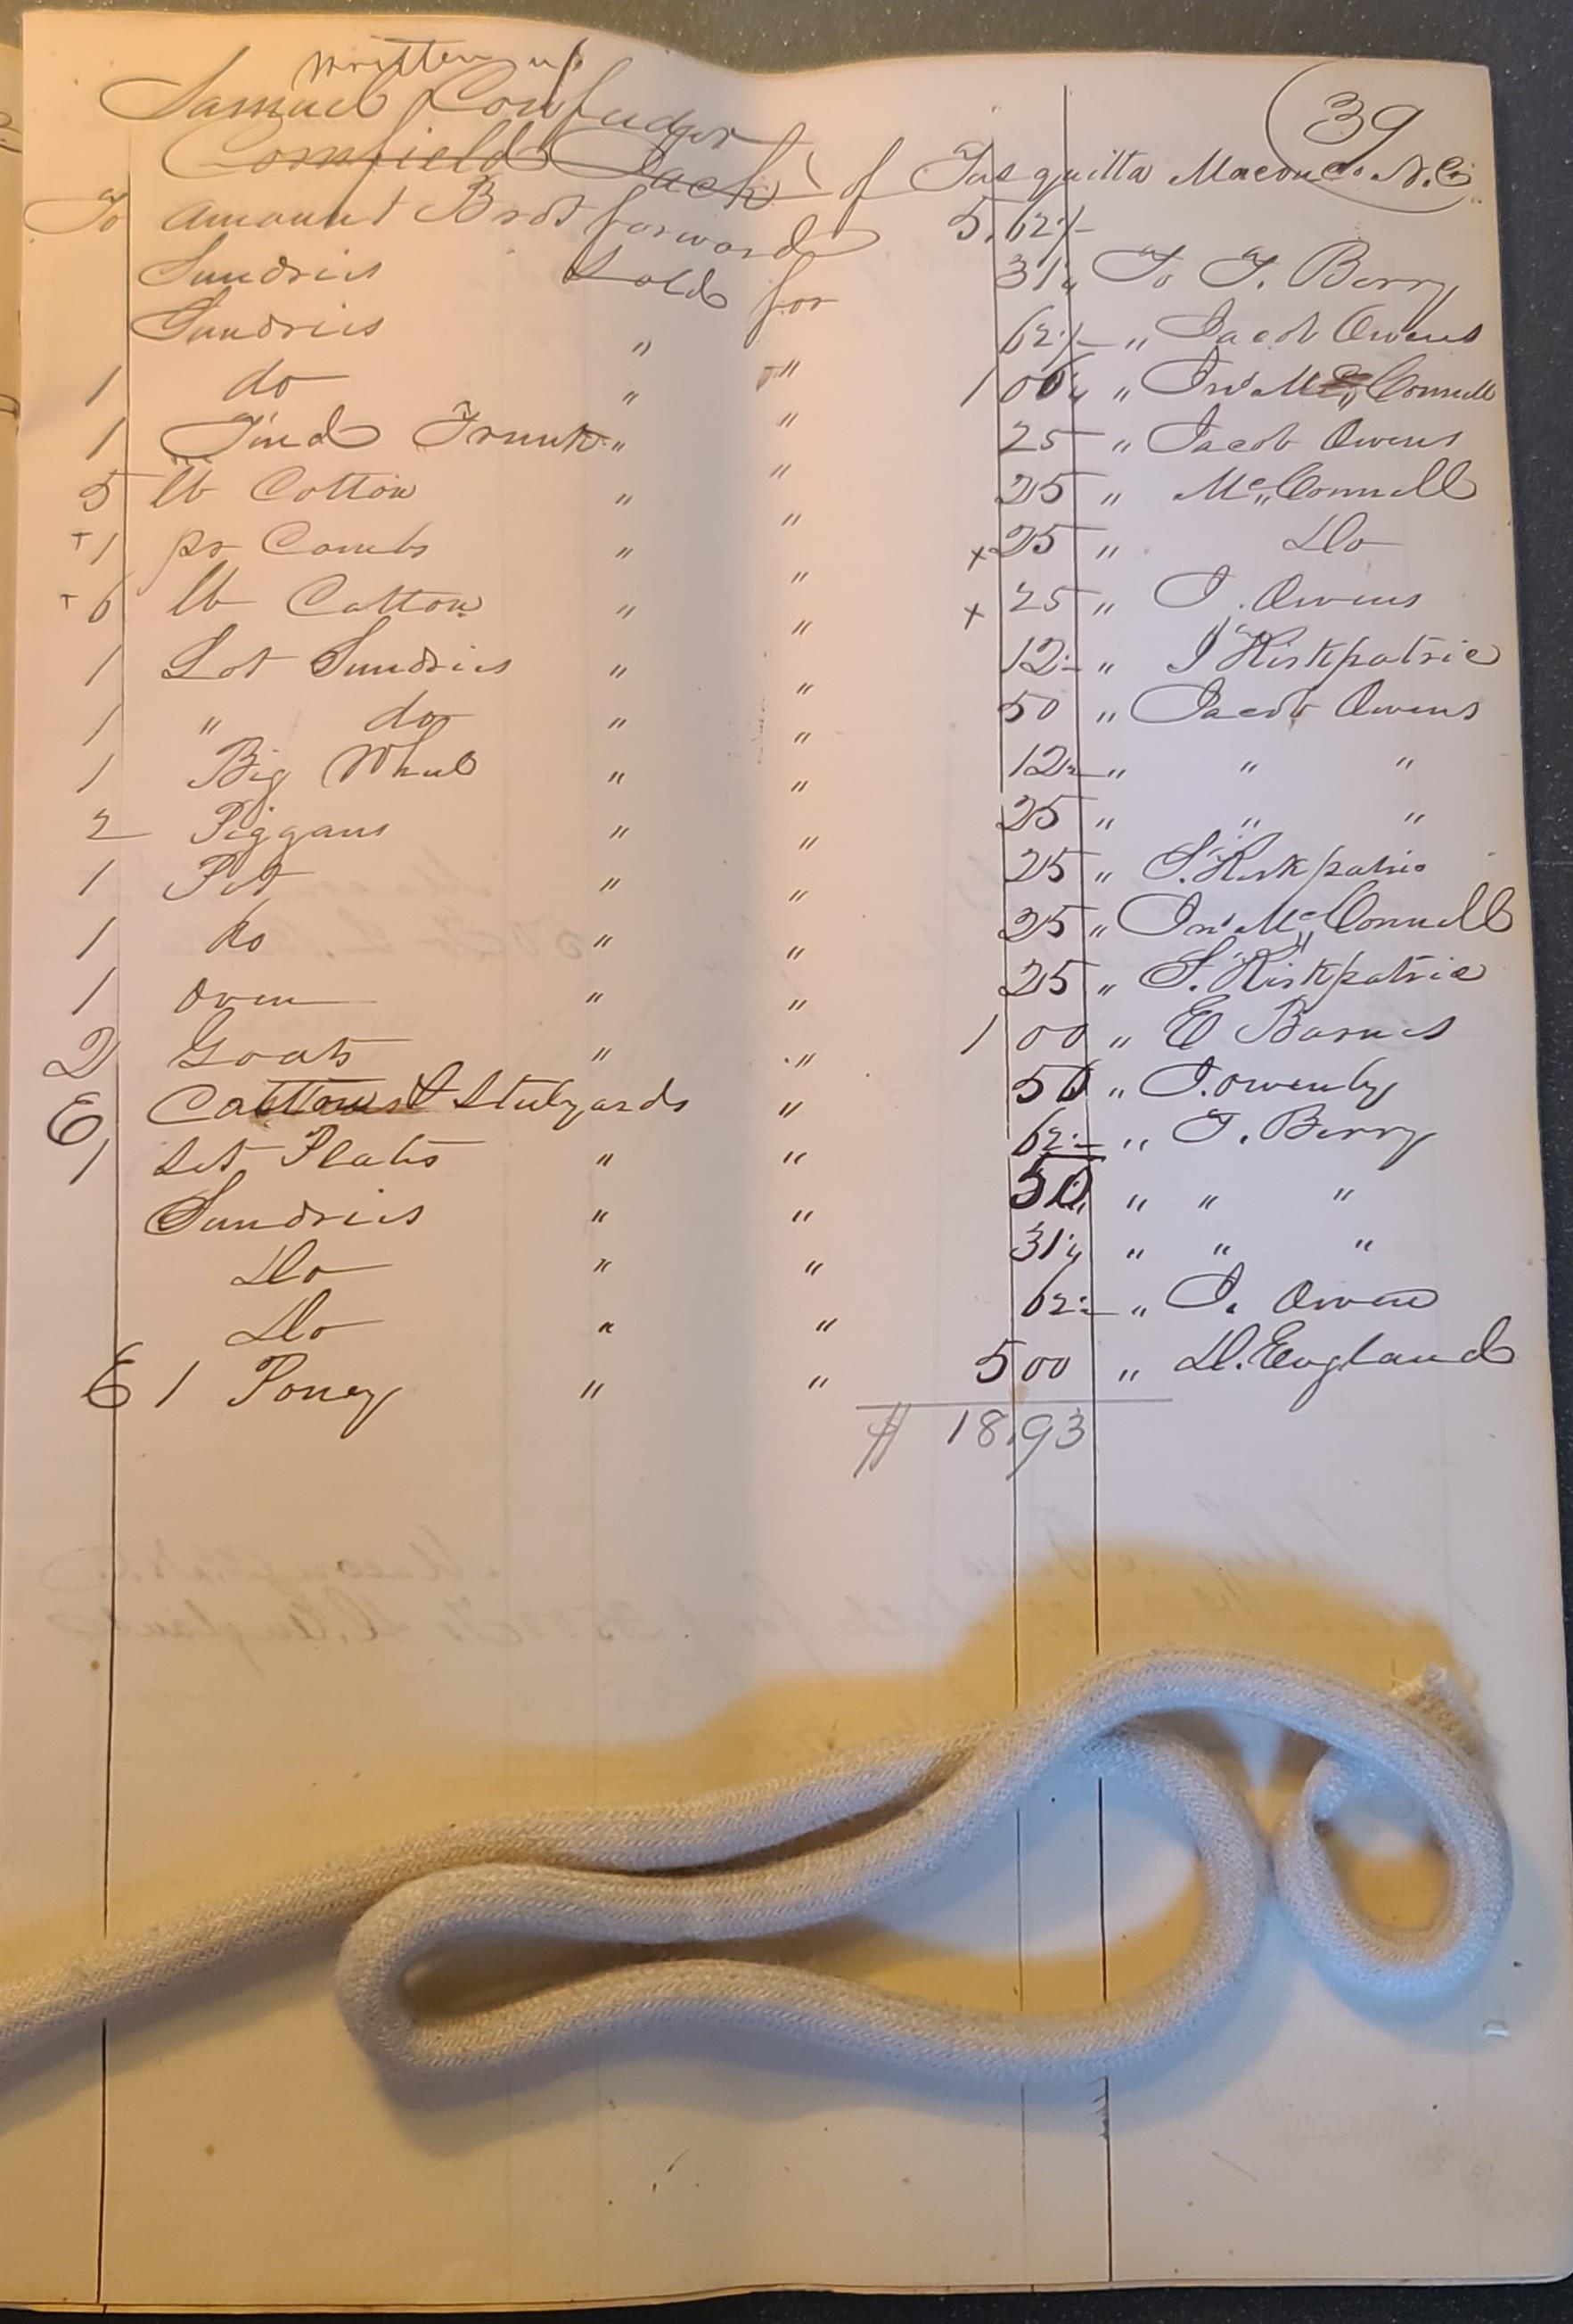 39
written up
Samuel Cornfudger
Cornfield Jack of Tusquitta Macon Co. N.C.
To amount Brot forward 5.62½
Sundries Sold for 31¼ To T. Berry
Sundries " " 62½ " Jacob Owens
1 do " " 1 00 " Jno McConnell
1 Tind Trunk " " 25 " Jacob Owens
5 lb Cotton " " 25 " McConnell
+1 pr Combs " " x25 " Do
+6 lb Cotton " " x 25 " J. Owens
1 Lot Sundries " " 12½ " J Kirkpatric
1 " do " " 50 " Jacob Owens
1 Big Wheel " " 12½ " " "
2 Piggans " " 25 " " "
1 Pot " " 25 " S. Kirkpatric
1 Do " " 25 " Jno McConnell
1 Oven " " 25 " S. Kirkpatric
2 Goats " " 1 00 " E Barnes
E & Stulyards " 50 " J. Owenby
1 Set Plates " " 62½ " T. Berry
Sundries " " 50 " " "
Do " " 31¼ " " "
Do " " 62½ " J. Owen
E 1 Poney " " 5 00 " D. England
$ 18,93